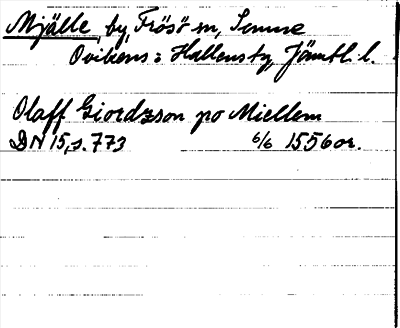 Mjälle, by, Frösö sn, Sunne
Ovikens o Hallens tg, Jämtl. l.
Olaff Giordzson po Miellem
DN 15, s. 773 6/6 1556 or.